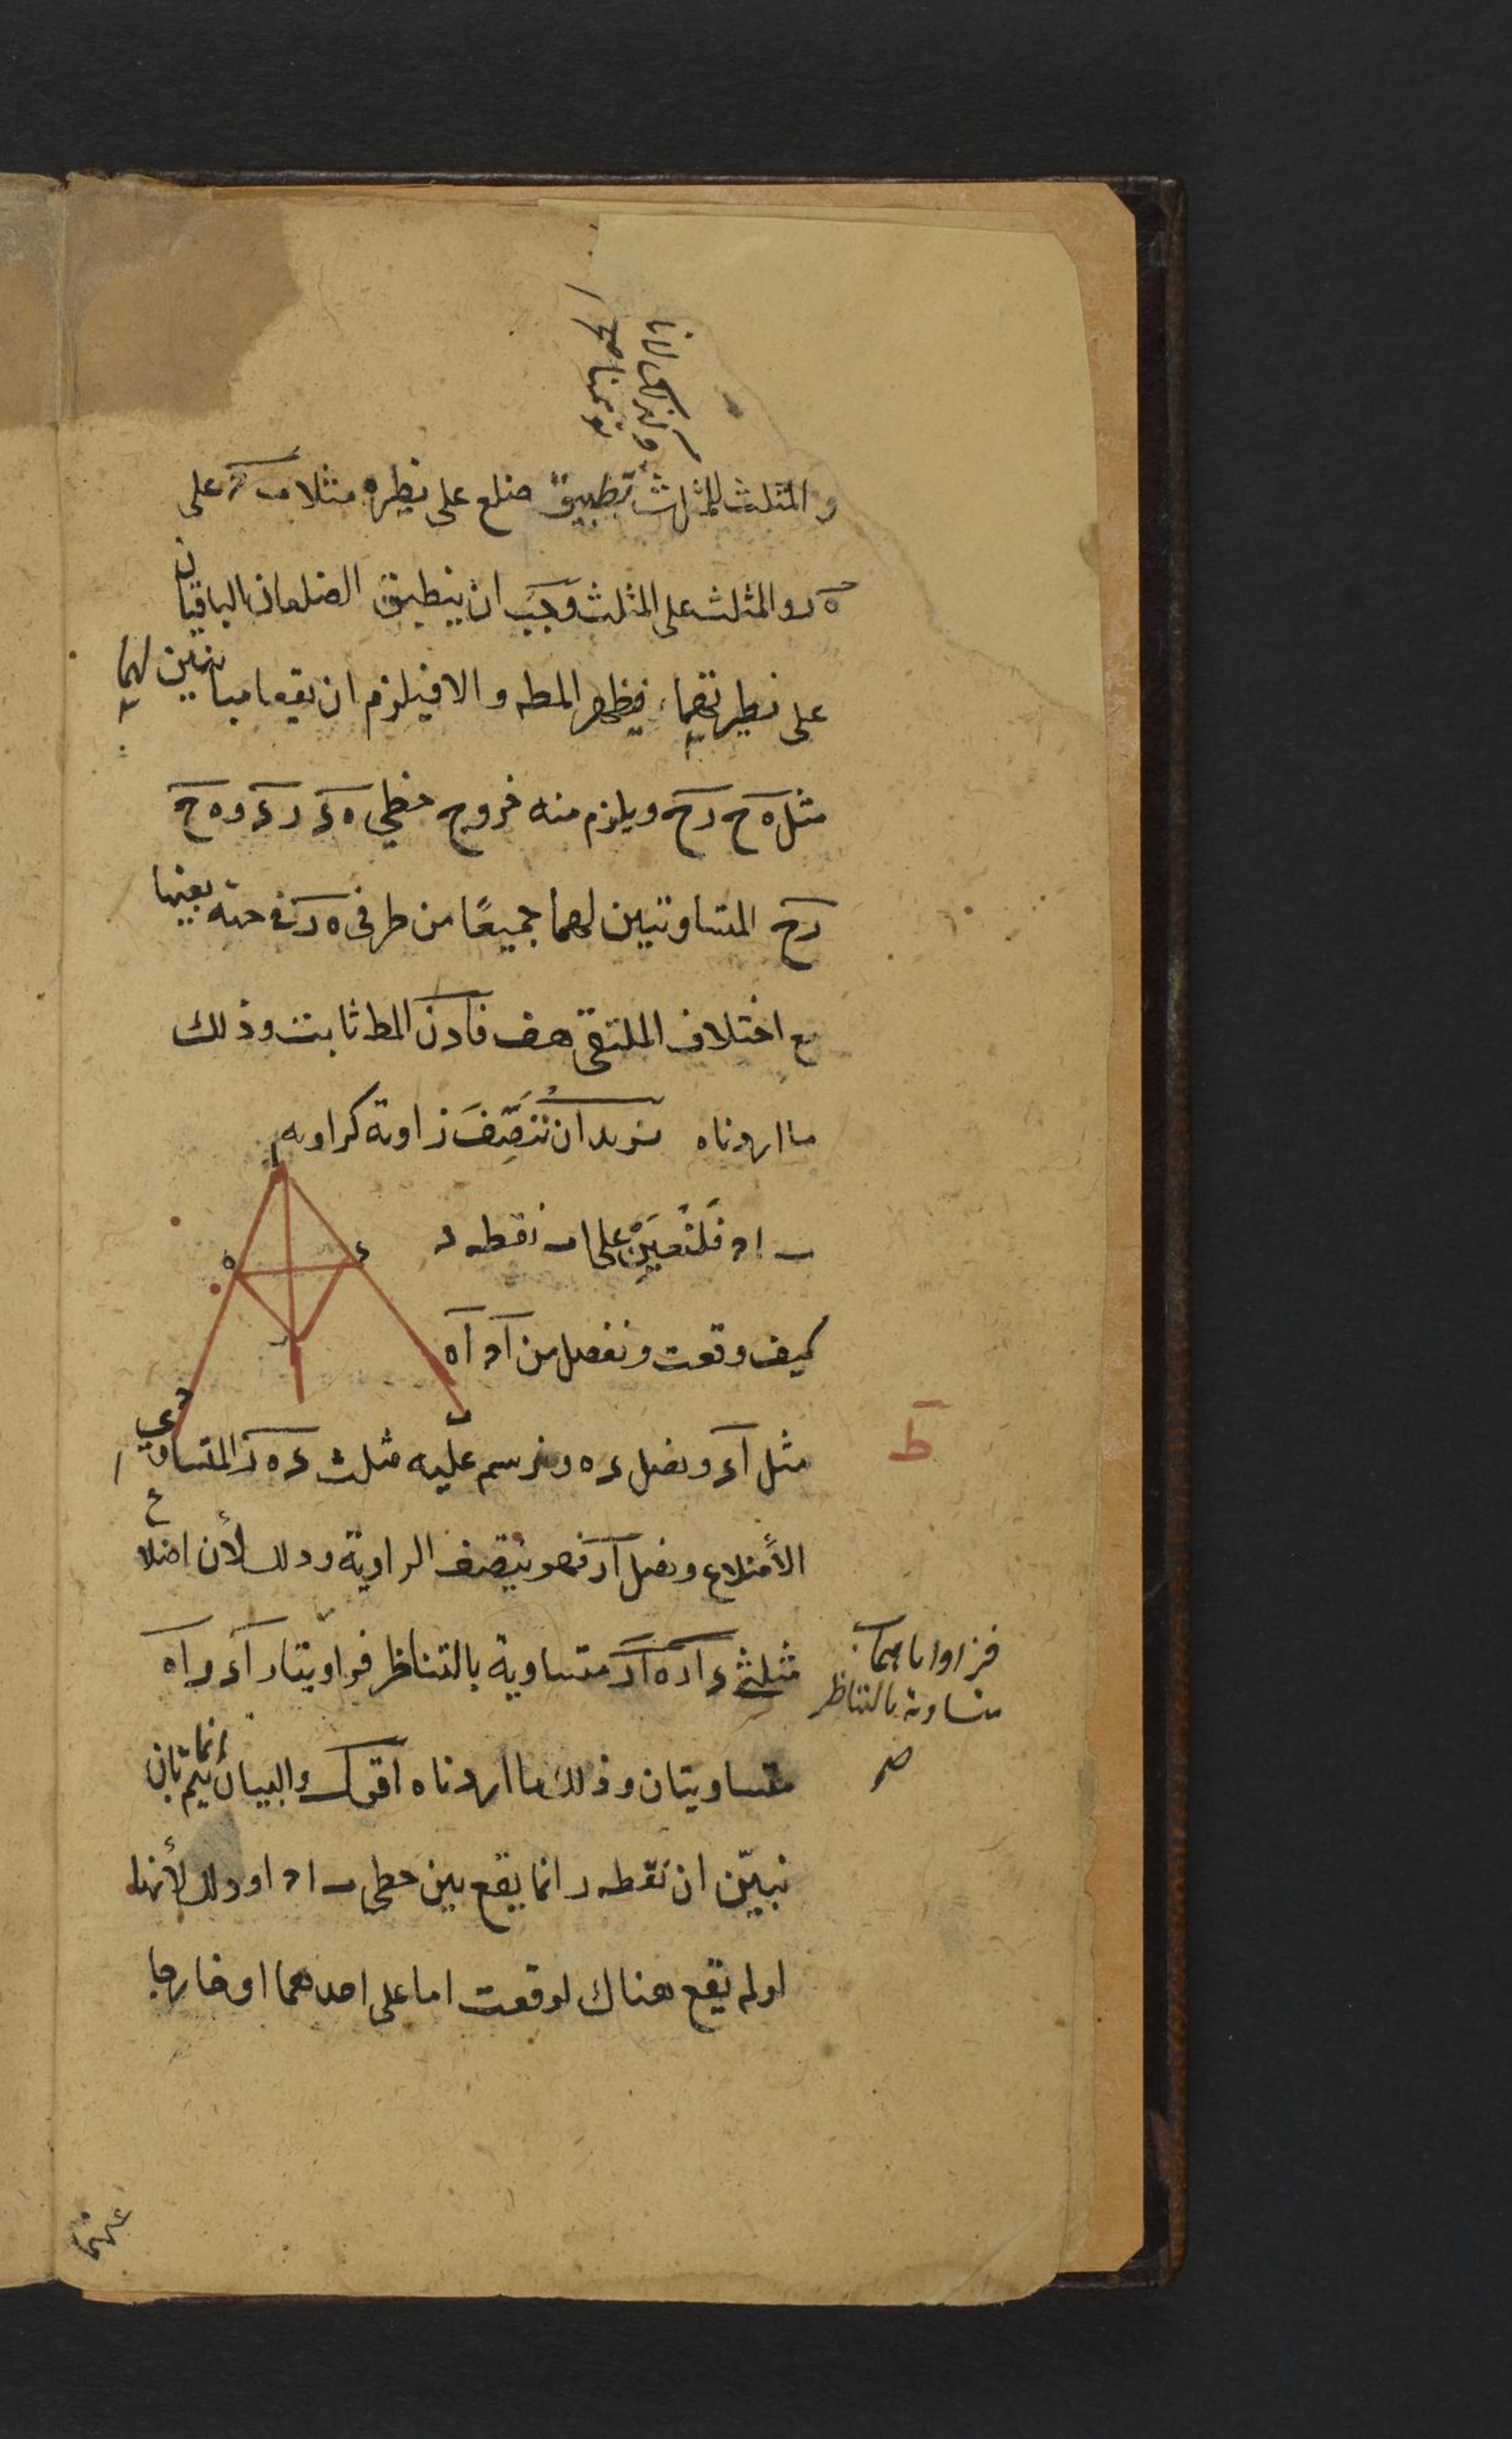 والمثلث للمثلث تطبيق ضلع على نظيره مثلا ب ح على
ه ر والمثلث على المثلث وجب ان ينطبق الضلعان الباقيان
على نظيرتهما فيظهر المط والا فيلزم ان يقعا مباينين لهما
مثل ه ح ر ح ويلزم منه خروج خطي ه ء ر ء و ه ح
ر ح المتساويتين لهما جميعًا من طرفى ه ر فى جهة بعينها
مع اختلاف الملتقى هف فاذن المط ثابت وذلك
ما اردناه نريد ان نُنَصِّفَ زاوية كزاوية
ب ا ح فَلْنُعَيِّنْ على ا ب نقطه د
كيف وقعت ونفصل من ا ح ا ه
مثل ا ء ونصل ء ه ونرسم عليه مثلث ء ه ر المتساوي
ط
الأضلاع ونصل ا ر فهو ينصف الزاوية وذلك لأن اضلاع
مثلثى ء ا ر ه ا ر متساوية بالتناظر فزاويتا ر ا ء ر ا ه
فزواياهما
متساوية بالتناظر
صح
متساويتان وذلك ما اردناه اقول والبيان انما يتم بان
نبيّن ان نقطه ر انما يقع بين خطى ب ا ح ا وذلك لأنها
لو لم يقع هناك لوقعت اما على احدهما او خارجا
عنهما